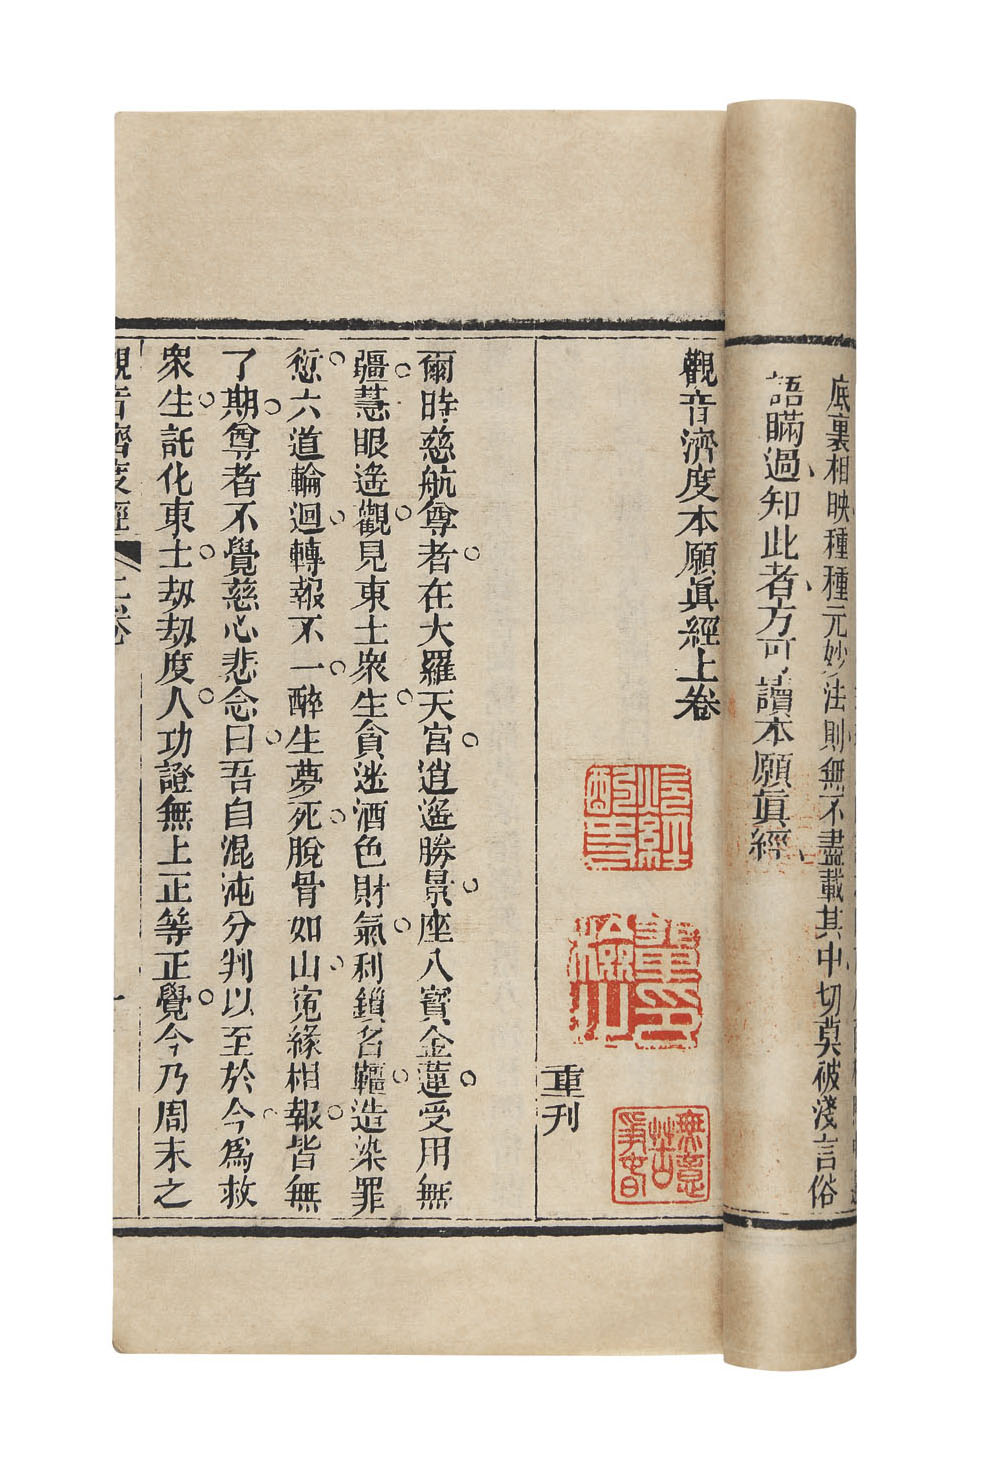 底裏相映種種元妙法則無不盡載其中切莫被淺言俗
語瞞過知此者方可讀本願眞經
觀音濟度本願眞經上卷
重刊
爾時慈航尊者在大羅天宮逍遙勝景座八寳金蓮受用無
疆慧眼遙觀見東土衆生貪迷酒色財氣利鎖名韁造染罪
愆六道輪迴轉報不一醉生夢死脫骨如山寃緣相報皆無
了期尊者不覺慈心悲念曰吾自混沌分判以至於今爲救
衆生託化東土劫劫度人功證無上正等正覺今乃周末之
觀音濟度經 上卷